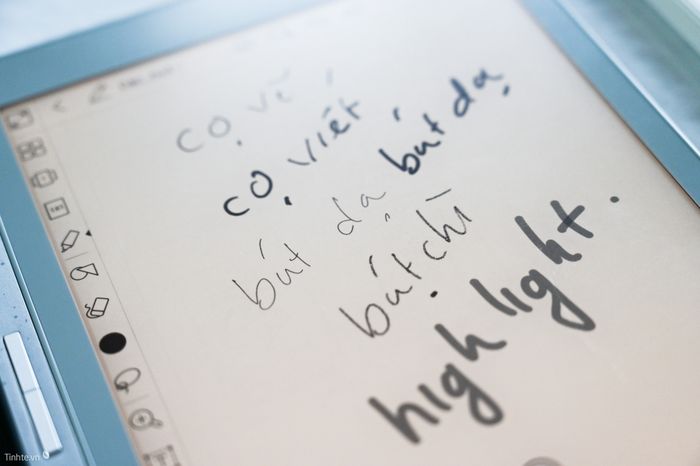 cọ vẽ,
cọ viết bút dạ
bút dạ
bút chì
highlight.
Tinhte.vn